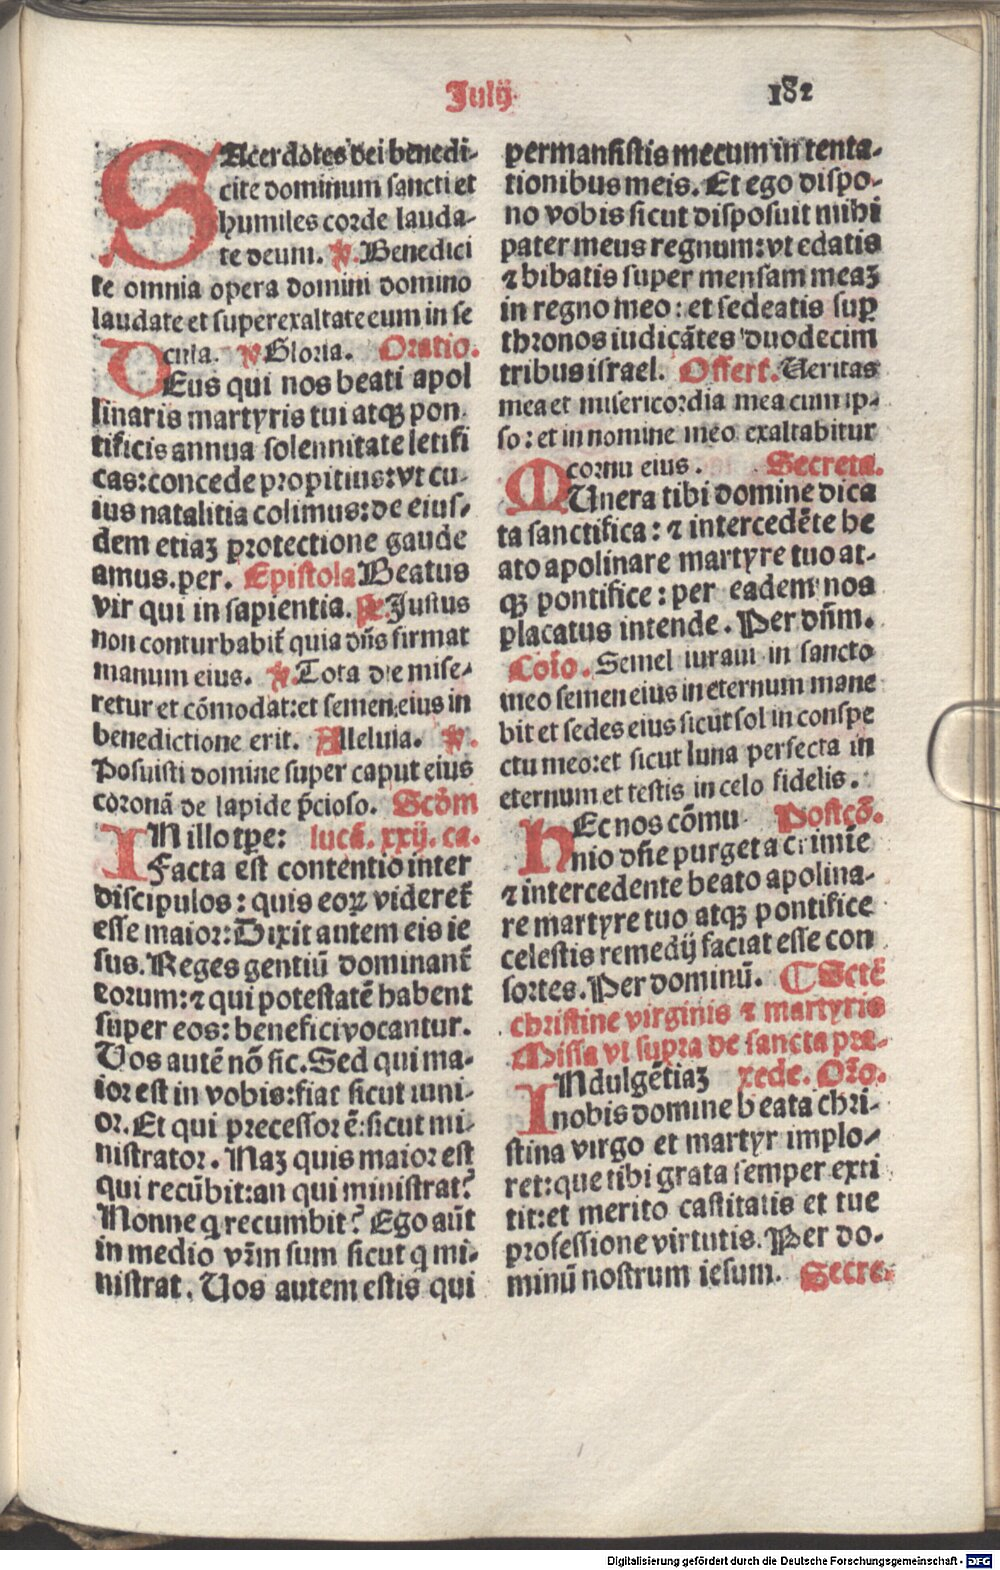 July
182
SAcerdotes dei benedi-
cite dominum sancti et
humiles corde lauda-
te deum. ℣. Benedici
te omnia opera domini domino
laudate et superexaltate eum in se
cula. ℣ Gloria. Oratio.
DEus qui nos beati apol
linaris martyris tui atqꝫ pon
tificis annua solennitate letifi
cas: concede propitius: vt cu-
ius natalitia colimus: de eius-
dem etiaꝫ protectione gaude
amus. per. Epistola Beatus
vir qui in sapientia. Justus
non conturbabit᷑ quia dñs firmat
manum eius. ℣. Tota die mise-
retur et cõmodat: et semen eius in
benedictione erit. Alleluia. ℣.
Posuisti domine super caput eius
coronã de lapide p̃cioso. Scðm
IN illo tꝑe: lucã. xxij. ca.
Facta est contentio inter
discipulos: quis eoꝝ videret᷑
esse maior: Dixit autem eis ie
sus. Reges gentiũ dominant᷑
eorum: ⁊ qui potestatẽ habent
super eos: benefici vocantur.
Vos autẽ nõ sic. Sed qui ma-
ior est in vobis: fiat sicut iuni-
or. Et qui precessor ẽ: sicut mi-
nistrator. Naꝫ quis maior est
qui recũbit: an qui ministrat?
Nonne q recumbit? Ego aũt
in medio vr̃m sum sicut q mi-
nistrat. Vos autem estis qui
permansistis mecum in tenta-
tionibus meis. Et ego dispo-
no vobis sicut disposuit mihi
pater meus regnum: vt edatis
⁊ bibatis super mensam meaꝫ
in regno meo: et sedeatis suꝑ
thronos iudicãtes duodecim
tribus israel. Offert᷑. Veritas
mea et misericordia mea cum ip-
so: et in nomine meo exaltabitur
cornu eius. Secreta.
MUnera tibi domine dica
ta sanctifica: ⁊ intercedẽte be
ato apolinare martyre tuo at-
qꝫ pontifice: per eadem nos
placatus intende. Per dñm.
Coĩo. Semel iuraui in sancto
meo semen eius in eternum mane
bit et sedes eius sicut sol in conspe
ctu meo: et sicut luna perfecta in
eternum et testis in celo fidelis.
HEc nos cõmu Postcõ.
nio dñe purget a crimĩe
⁊ intercedente beato apolina-
re martyre tuo atqꝫ pontifice
celestis remedij faciat esse con
sortes. Per dominũ. ¶ Sctẽ
christine virginis ⁊ martyris
Missa vt supra de sancta pra-
INdulgẽtiaꝫ xede. Oro.
nobis domine beata chri-
stina virgo et martyr implo-
ret: que tibi grata semper exti
tit: et merito castitatis et tue
professione virtutis. Per do-
minũ nostrum iesum. Secre-
Digitalisierung gefördert durch die Deutsche Forschungsgemeinschaft - DFG